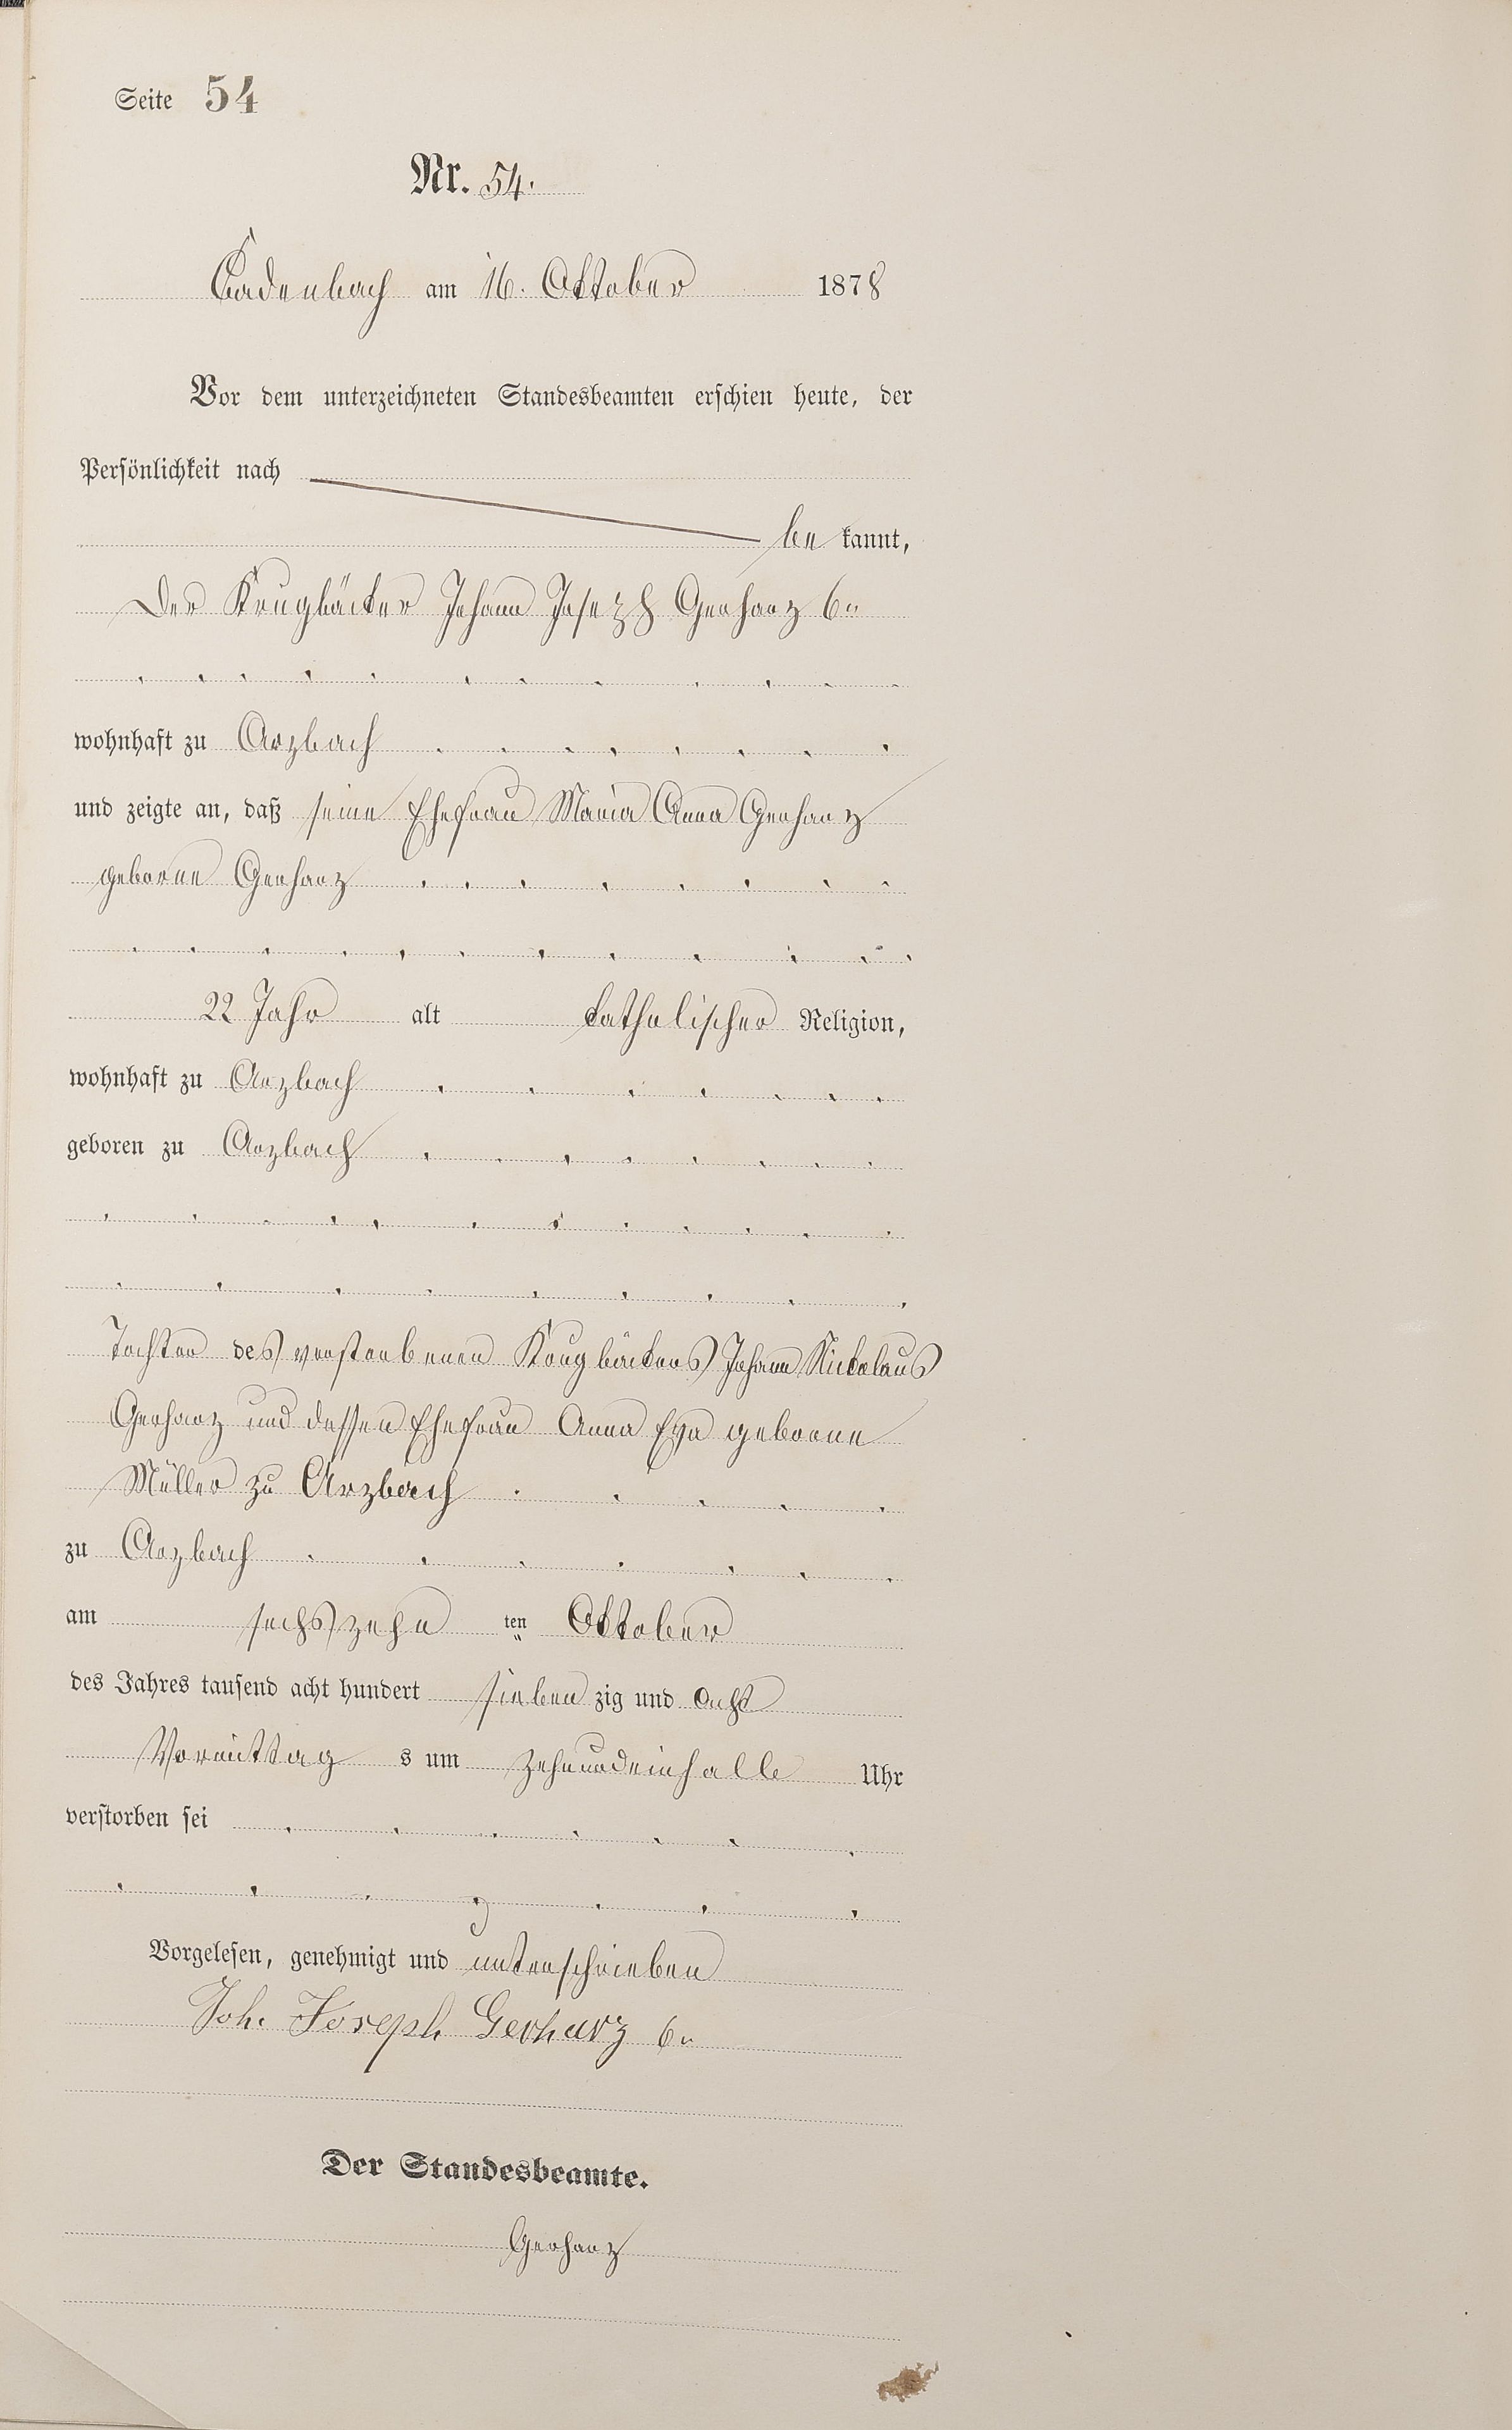 Seite 54
Nr. 54.
Cadenbach am 16. Oktober 1878
Vor dem unterzeichneten Standesbeamten erschien heute, der
Persönlichkeit nach
be kannt,
Der Krugbäcker Johann Joseph Gerharz 6r
wohnhaft zu Arzbach
und zeigte an, daß seine Ehefrau Maria Anna Gerharz
geborne Gerharz
22 Jahr alt katholischer Religion,
wohnhaft zu Arzbach
geboren zu Arzbach
Tochter des verstorbenen Krugbäckers Johann Nickolaus
Gerharz und dessen Ehefrau Anna Eva geborne
Müller zu Arzbach
zu Arzbach
am sechszehn ten Oktober
des Jahres tausend acht hundert sieben zig und acht
Vormittag s um zehnundeinhalb Uhr
verstorben sei
Vorgelesen, genehmigt und unterschrieben
Joh. Joseph Gerharz 6r
Der Standesbeamte.
Gerharz